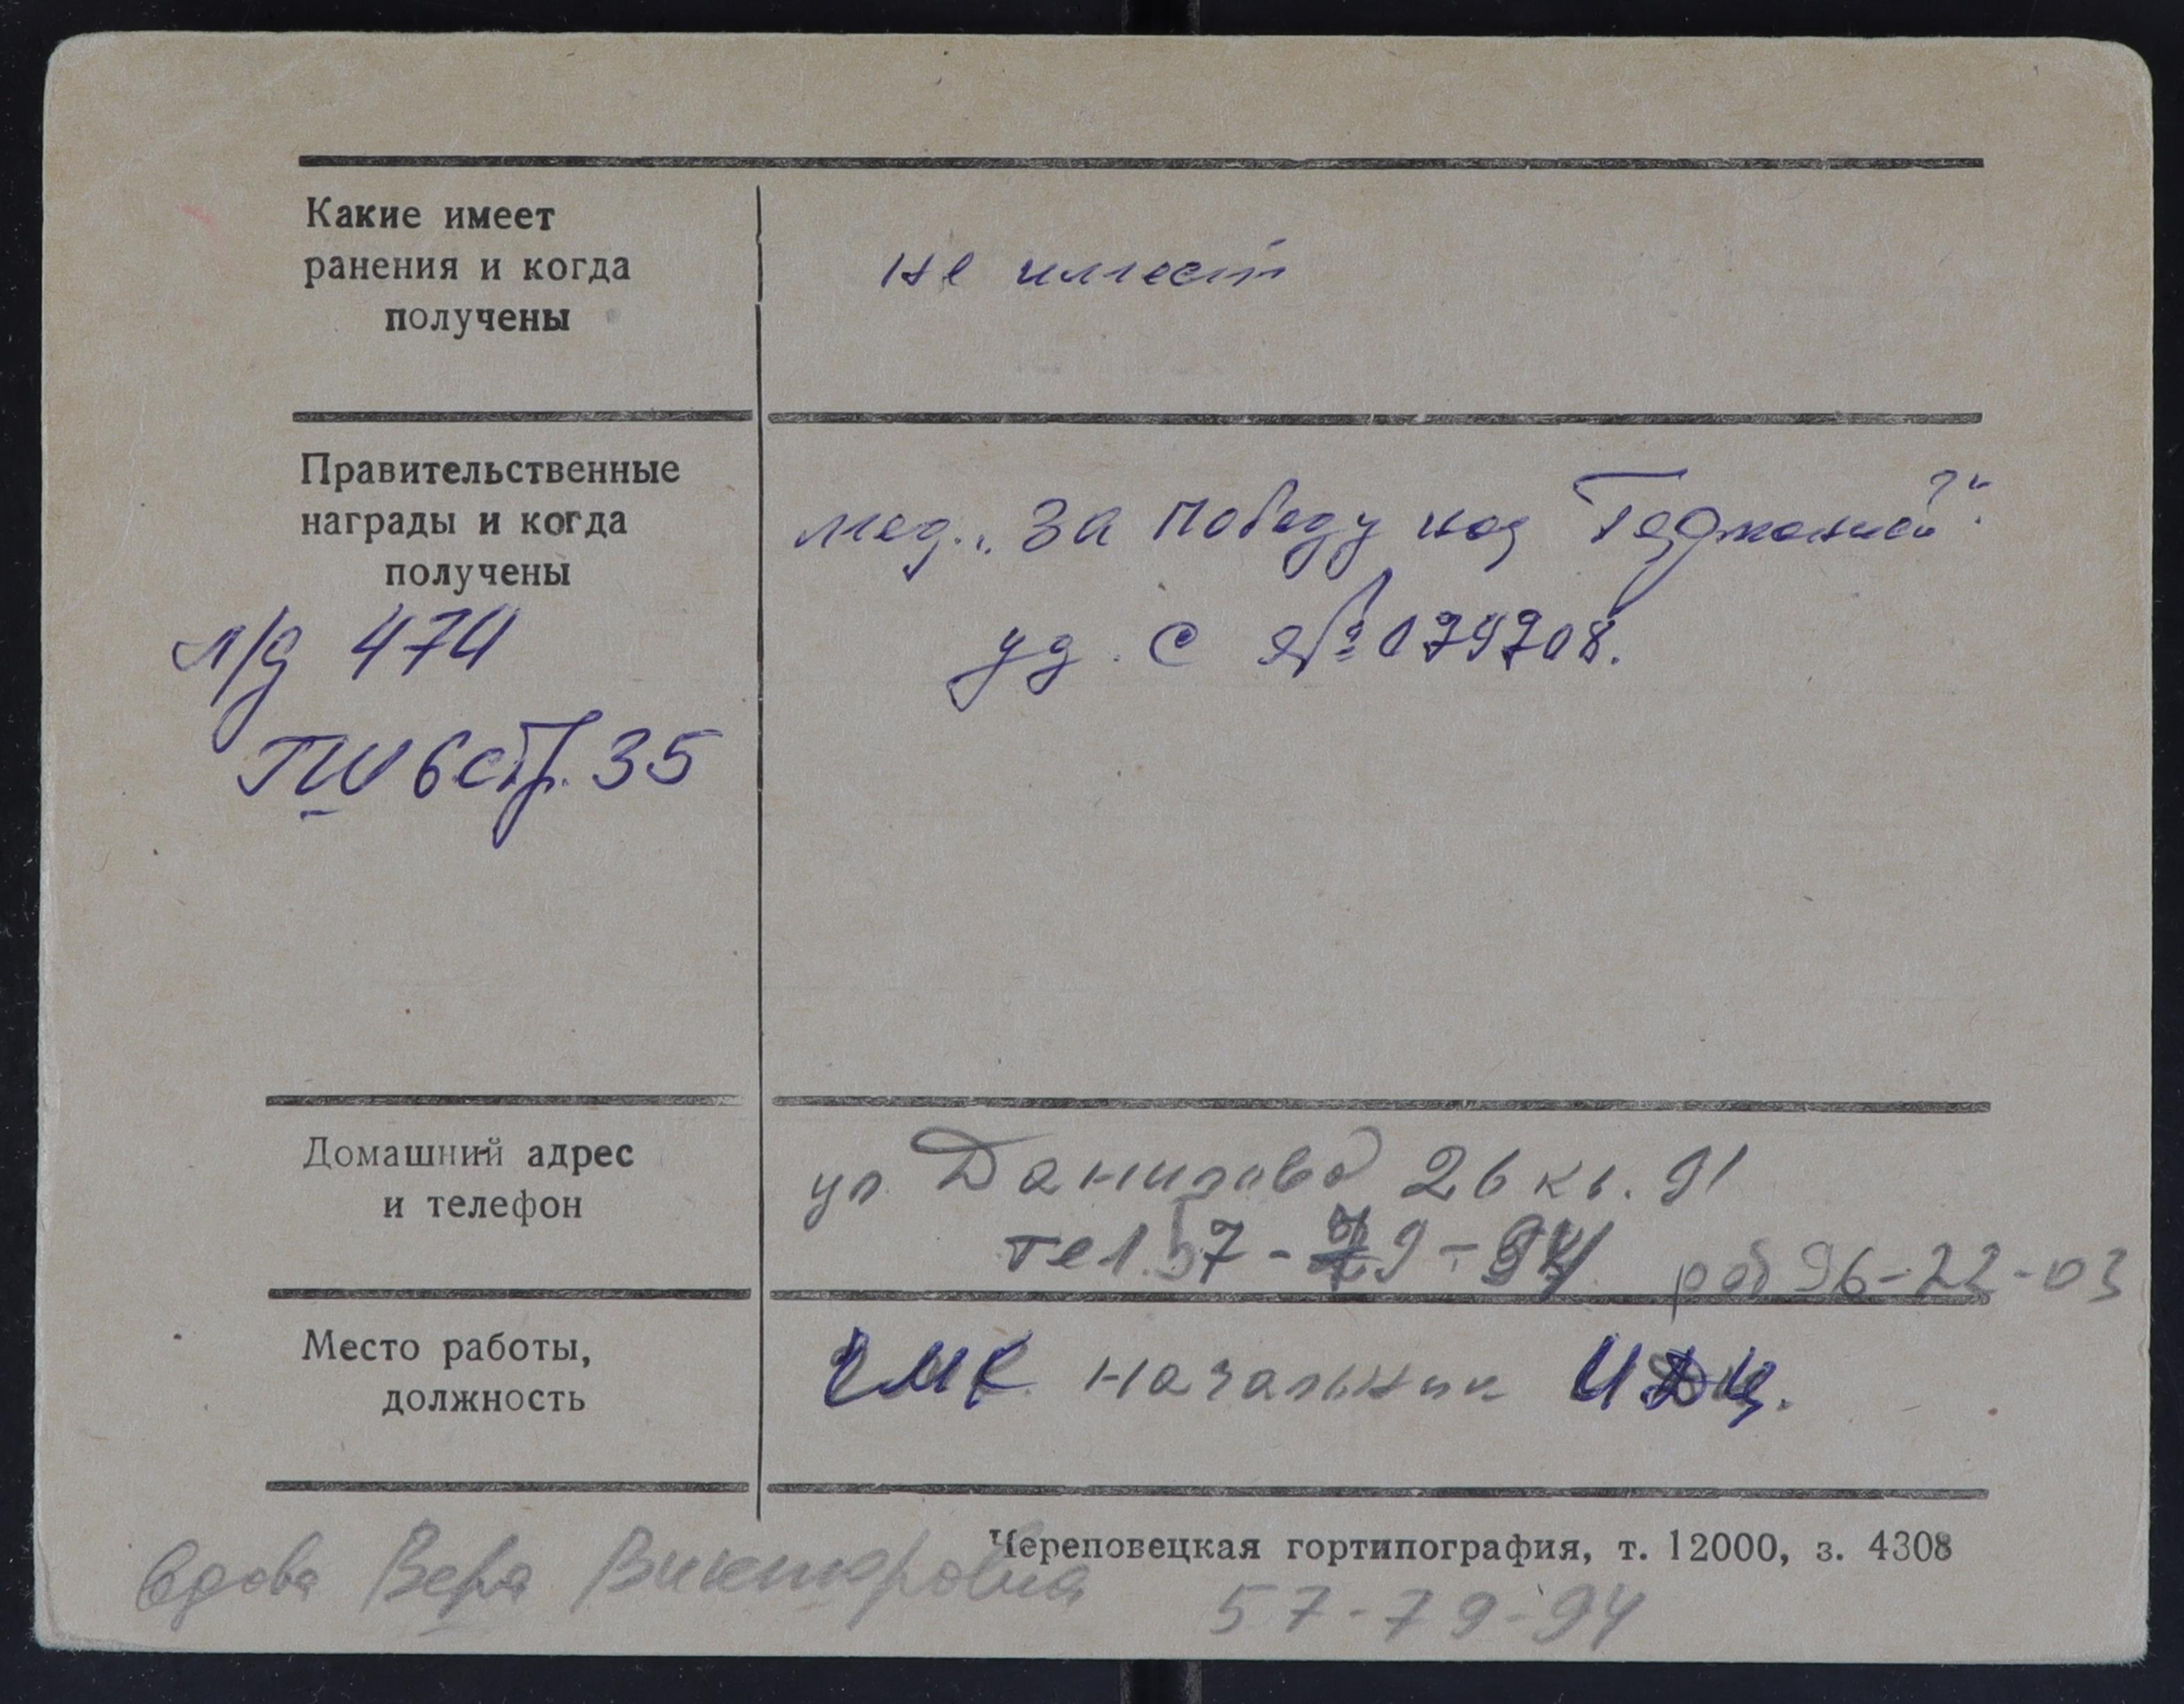 Какие имеет
ранения и когда
получены
не имеет
Правительственные
награды и когда
получены
мед. „За победу над Германией".
уд. С № 0179708.
л/д 474
ТIV 6 стр. 35
Домашний адрес
и телефон
ул. Данилова 26 кв. 91
тел. 57-79-94 раб 96-22-03
Место работы,
должность
ЧМК начальник
Череповецкая гортипография, т. 12000, з. 4308
Вдова Вера Викторовна
57-79-94